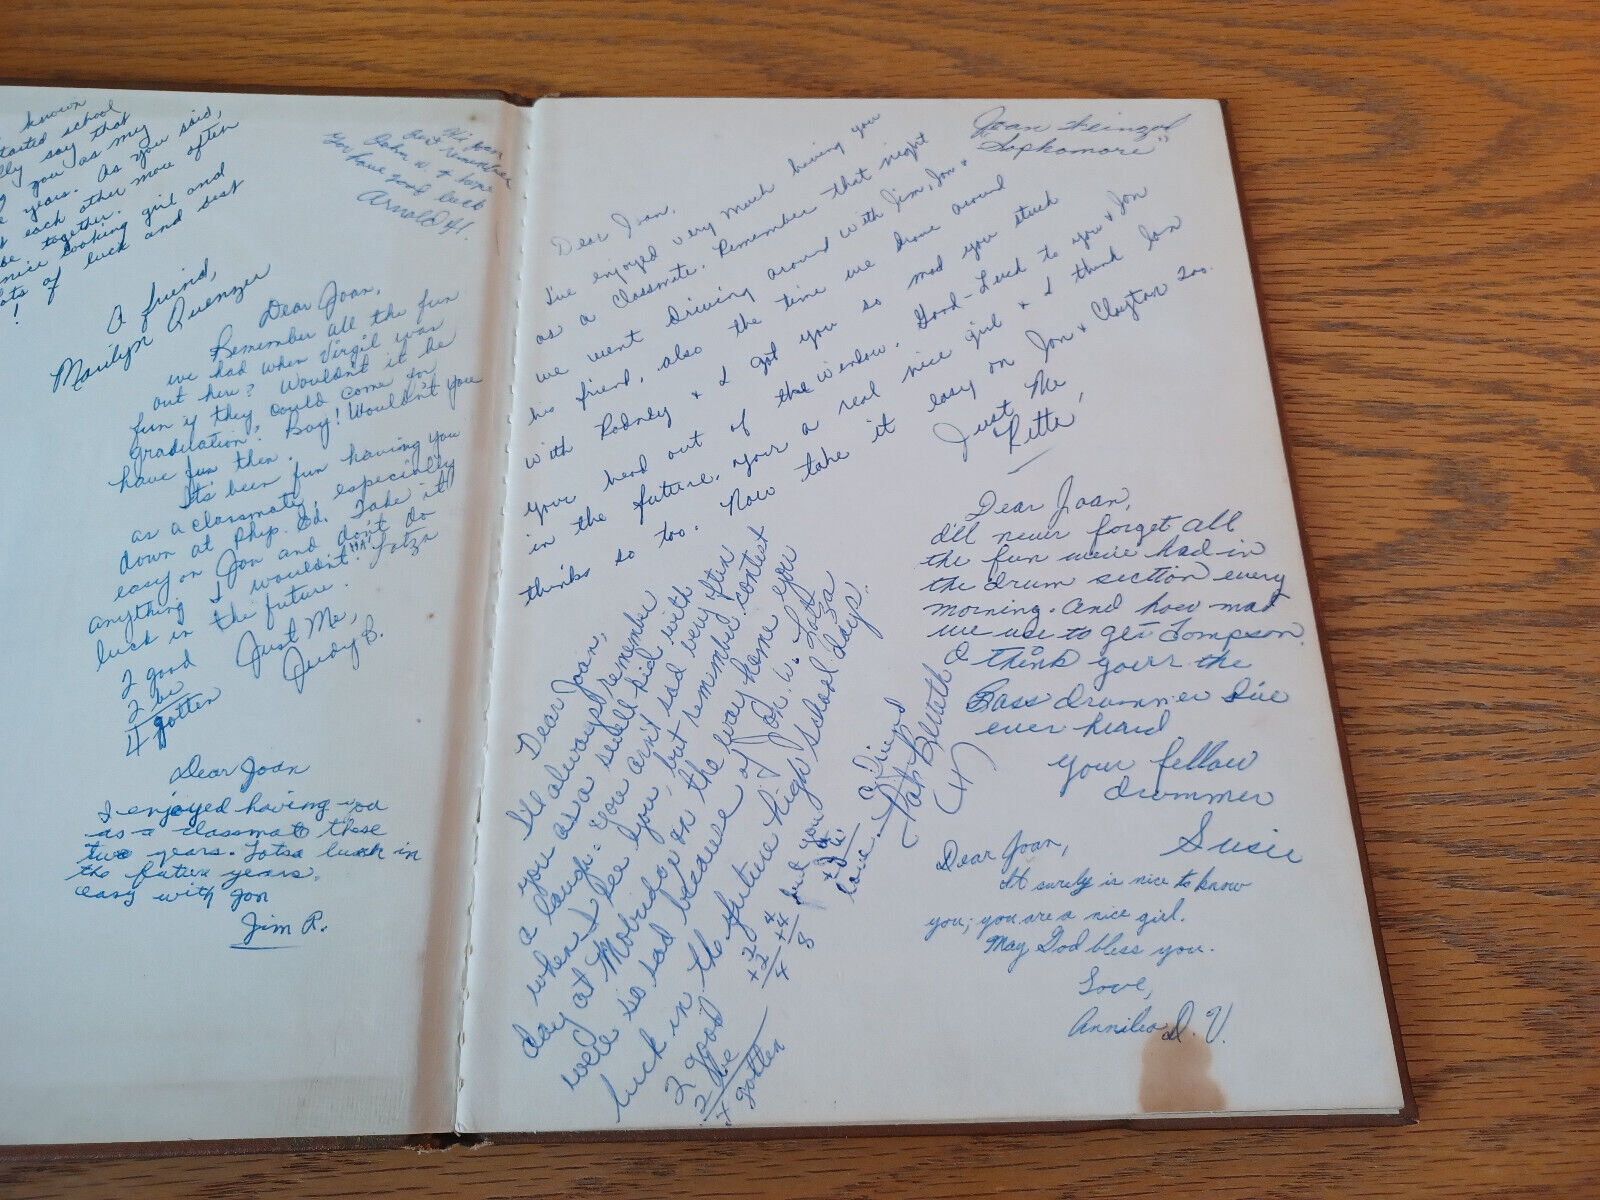 known
started school
say that
you as my
years. As you said,
each other more often
together.
nice looking girl and
lots of luck and best
!
A friend,
Marilyn Quenzer
Hi Joan
Don't remember
John W. & hope
You have good luck
Arnold H.
Dear Joan,
Remember all the fun
we had when Virgil was
out here? Wouldn't it be
fun if they could come for
graduation? Boy! Wouldn't you
have fun then.
It's been fun having you
as a classmate, especially
down at Phys. Ed. Take it
easy on Jon and don't do
anything I wouldn't "HA" Lotza
luck in the future.
Just Me,
Judy B.
2 good
2 be
4 gotten
Dear Joan
I enjoyed having you
as a classmate these
two years. Lotsa luck in
the future years.
easy with Jon
Jim R.
Joan Heinzel
"Sophomore"
Dear Joan,
I've enjoyed very much having you
as a classmate. Remember that night
we went driving around with Jim, Jon &
his friend, also the time we drove around
with Rodney & I got you so mad you stuck
your head out of the window. Good-Luck to you & Jon
in the future. Your a real nice girl & I think Jon
thinks so too. Now take it easy on Jon & Clayton too.
Just Me
"Ritta"
Dear Joan,
I'll never forget all
the fun we've had in
the drum section every
morning. And how mad
we use to get Tompson.
I think your the
Bass drummer I've
ever heard
Your fellow
drummer
Susie
Dear Joan,
I'll always remember
you as a swell kid with
a laugh. You ain't sad very often
when I see you, but remember contest
day at Mobridge on the way home you
were so sad because of Jon W. Lotza
luck in the future high school days.
2 good
2 be
4 gotten
2
+2
4
4
+4
8
love
a friend
Pat Beuth
(H)
Dear Joan,
It surely is nice to know
you; you are a nice girl.
May God bless you.
Love,
D. V.